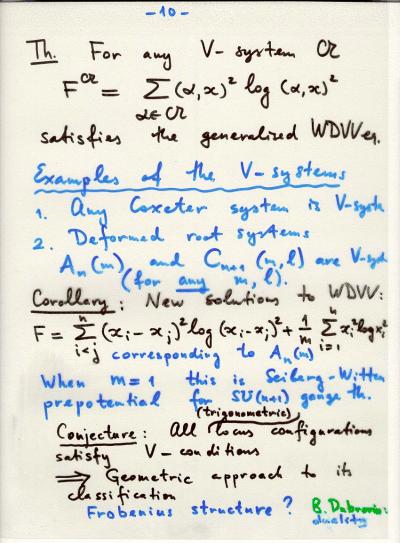 -10-
Th. For any V-system 𝒜
F^𝒜 = Σ_{α∈𝒜} (α,x)² log (α,x)²
satisfies the generalized WDVV eq.
Examples of the V-systems
1. Any Coxeter system is V-syste
2. Deformed root systems
A_n(m) and C_{n+1}(m,l) are V-syst
(for any m, l).
Corollary: New solutions to WDVV:
F = Σ_{i<j}^{n} (x_i - x_j)² log (x_i - x_j)² + 1/m Σ_{i=1}^{n} x_i² log x_i²
corresponding to A_n(m)
When m=1 this is Seiberg-Witten
prepotential for SU(n+1) gauge th.
(trigonometric)
Conjecture: All locus configurations
satisfy V-conditions
⟹ Geometric approach to its
classification
Frobenius structure? B. Dubrovin:
duality